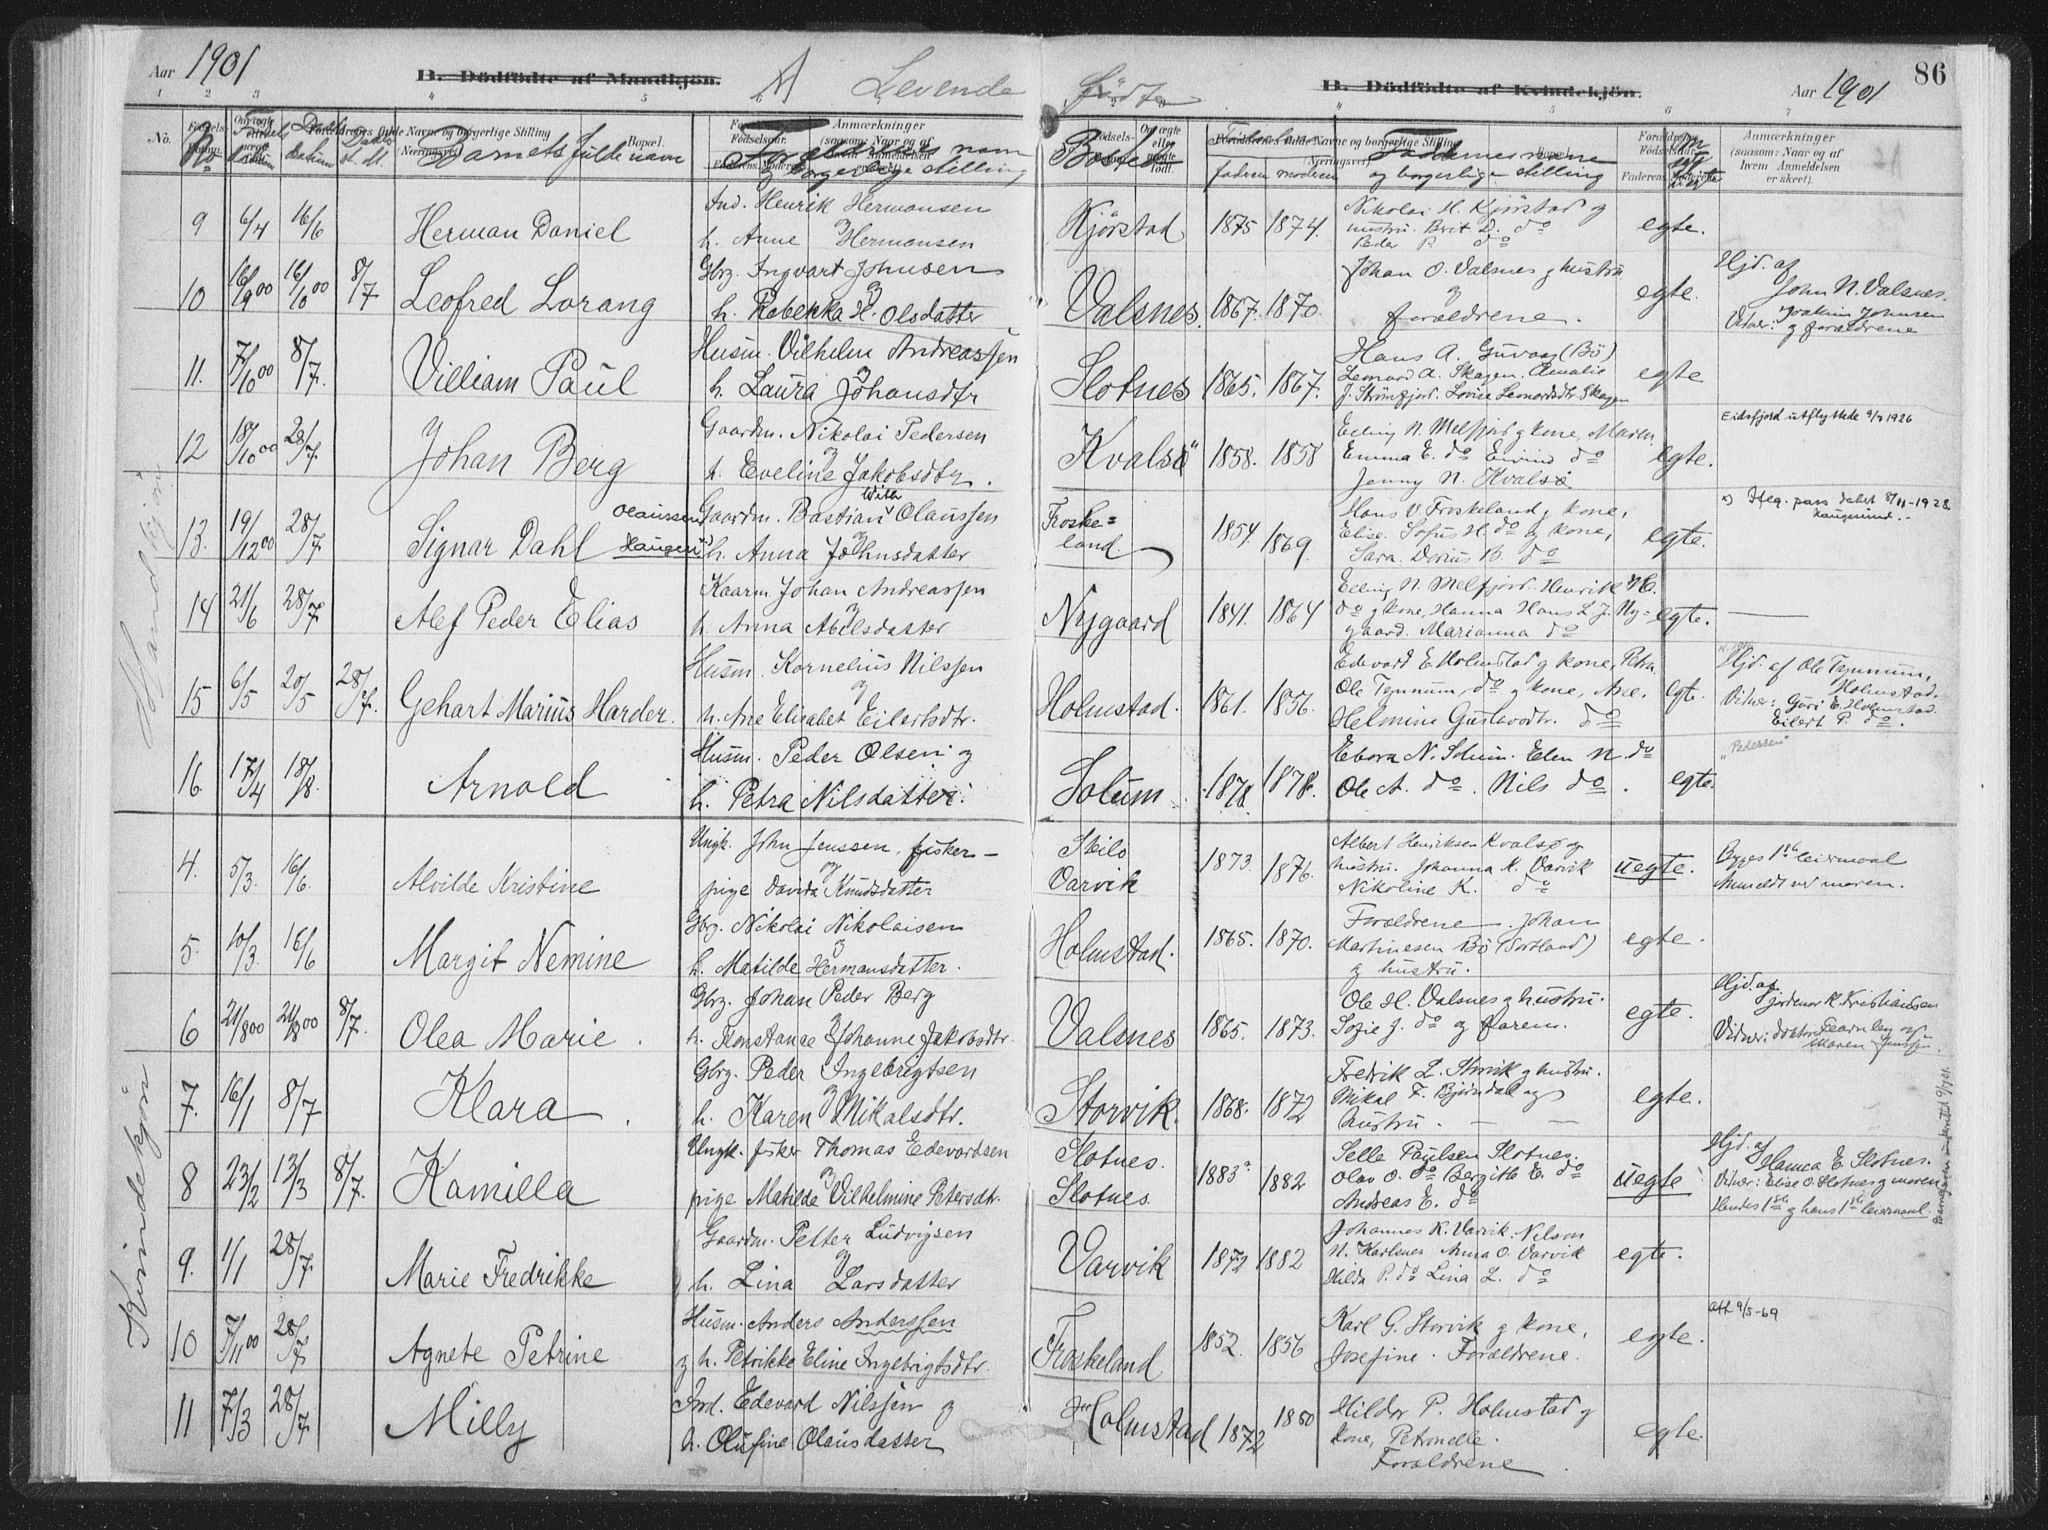 Aar 1901
B. Dödfödte af Mandkjön.
A Levende fødte
B. Dödfödte af Kvindekjön.
Aar 1901
86
No.
Barnets fulde navn
Forældrenes navn
og borgerlige stilling
Anmærkninger
(saasom: Naar og af
Bosted
faderen moderen
Faddernes navne
og borgerlige stilling
Anmærkninger
(saasom: Naar og af
hvem Anmeldelsen
er skeet).
Mandkjøn
9 6/4 16/6 Herman Daniel
Ind. Henrik Hermansen
og
h. Anne Hermansen
Kjørstad 1875 1874.
Nikolai H. Kjørstad og
hustru. Berit D. do
Peder P. do
egte.
10 16/9 00 16/10 00 8/7 Leofred Lorang
Gbrg. Ingvart Johnsen
og
h. Rebekka H. Olsdatter
Valsnes. 1867. 1870.
Johan O. Valsnes g hustru
og
forældrene.
egte.
Hjd. af
John N. Valsnes.
Vidner: Joakim Johnsen
og forældrene
11. 7/10 00 8/7. Villiam Paul
Husm. Vilhelm Andreassen
og
h. Laura Johansdtr
Slotnes 1865. 1867.
Hans A. Guvaag (Bö)
Leonard A. Skagen. Amalie
J. Strømfjord. Lovise Leonardsdtr. Skagen
egte
12 18/10 00 28/7. Johan Berg
Gaardm. Nikolai Pedersen
og
h. Eveline Jakobsdtr.
Kvalsø 1858. 1858
Eding N. Melfjord g kone, Maren
Emma E. do Eivind do
Jenny N. Kvalsø
egte.
Eidsfjord utflyttede 9/7 1926
13. 19/12 00 28/7 Signar Dahl
Olaussen
Gaardm. Bastian With Olaussen
og
h. Anna Johnsdatter
Froske=
land. 1854 1869.
Hans V. Froskeland g kone,
Elise. Sofus H. do g kone,
Sara. Dorius B. do
egte.
x) Ifeg. pass datet 8/11-1928
Haugesund.
14 21/6 28/7 Alef Peder Elias
Kaarm. Johan Andreassen
og
h. Anna Abelsdatter
Nygaard 1841. 1864
Eding N. Melfjord. Henrik N.
do g kone, Hanna Hans L. J. Ny=
gaard. Marianna do
egte.
15 6/5 20/5 28/7. Gehart Marius Harder.
Husm. Kornelius Nilssen
og
h. Ane Elisabet Eilertsdtr.
Holmstad. 1861. 1856.
Edevard E. Holmstad g kone, Petra
Ole Tynnum, do g kone, Ane.
Helmine Gustavdtr. do
egte.
Hjd. af Ole Tynnum,
Holmstad.
Vidner: Guri E. Holmstad.
Eilert P. do.
16. 17/4 18/8. Arnold
Husm. Peder Olsen og
h. Petra Nilsdatter.
Solum 1878. 1878.
Ebora N. Solum. Elen N. do
Ole A. do. Nils do.
egte.
"Pedersen"
Kvindekjøn
4. 5/3. 16/6. Alvilde Kristine
Ungk. John Jenssen, fisker –
og
pige Davida Knudsdatter
Skilo
Varvik 1873. 1876.
Albert Henriksen Kvalsø og
hustru. Johanna K. Varvik
Nikoline K. do
uegte.
Begges 1ste leiermaal
Anmeldt ved moren.
5. 10/3. 16/6 Margit Nemine
Gbrg. Nikolai Nikolaisen
og
h. Matilde Hermansdatter.
Holmstad. 1865. 1870.
Forældrene – Johan
Martinesen Bö (Sortland)
og hustru.
egte.
6 21/8 00 21/8 00 8/7. Olea Marie.
Gbrg. Johan Peder Berg
og
h. Konstanse Johanne Jakobsdtr.
Valsnes 1865. 1873.
Ole H. Valsnes g hustru.
Sofie J. do og faren.
egte.
Hjd. af
jordmor K. Kristiansen
Vidner: doktor Fearnley og
Maren Jenssen.
7. 16/1 8/7 Klara.
Gbrg. Peder Ingebrigtsen
og
h. Karen Mikalsdtr.
Storvik. 1868. 1872
Fredrik L. Storvik g hustru.
Mikal F. Bjørndal og
hustru. – –
egte.
8 23/2 13/3 8/7. Kamilla
Ungk. fisker Thomas Edevardsen
og
pige Matilde Vilhelmine Petersdtr.
Slotnes.
Slotnes. 1883. 1882
Selle Paulsen Slotnes.
Olav O. do Bergitte E. do
Andreas E. do
uegte
Hjd. af
Hamea E. Slotnes.
Vidner: Elise O. Slotnes g moren
Hendes 1ste g hans 1ste leiermaal.
9. 1/1 28/7 Marie Fredrikke
Gaardm. Petter Ludvigsen
og
h. Lina Larsdatter
Varvik 1872 1882
Johannes K. Varvik. Nilson
N. Karlsnes Anna O. Varvik
Hilda P. do Lina L. do
egte.
10 7/11 00 28/7 Agnete Petrine
Husm. Anders Anderssen
g h. Petrikke Eline Ingebrigtsdtr.
Froskeland 1852. 1856
Karl G. Storvik g kone,
Josefine. Forældrene.
egte.
att 9/5-69
11 7/3 28/7 Milly
Ind. Edevard Nilssen og
h. Olufine Olausdatter
Holmstad 1872 1880
Hildor P. Holmstad g
kone, Petronelle.
Forældrene
egte.